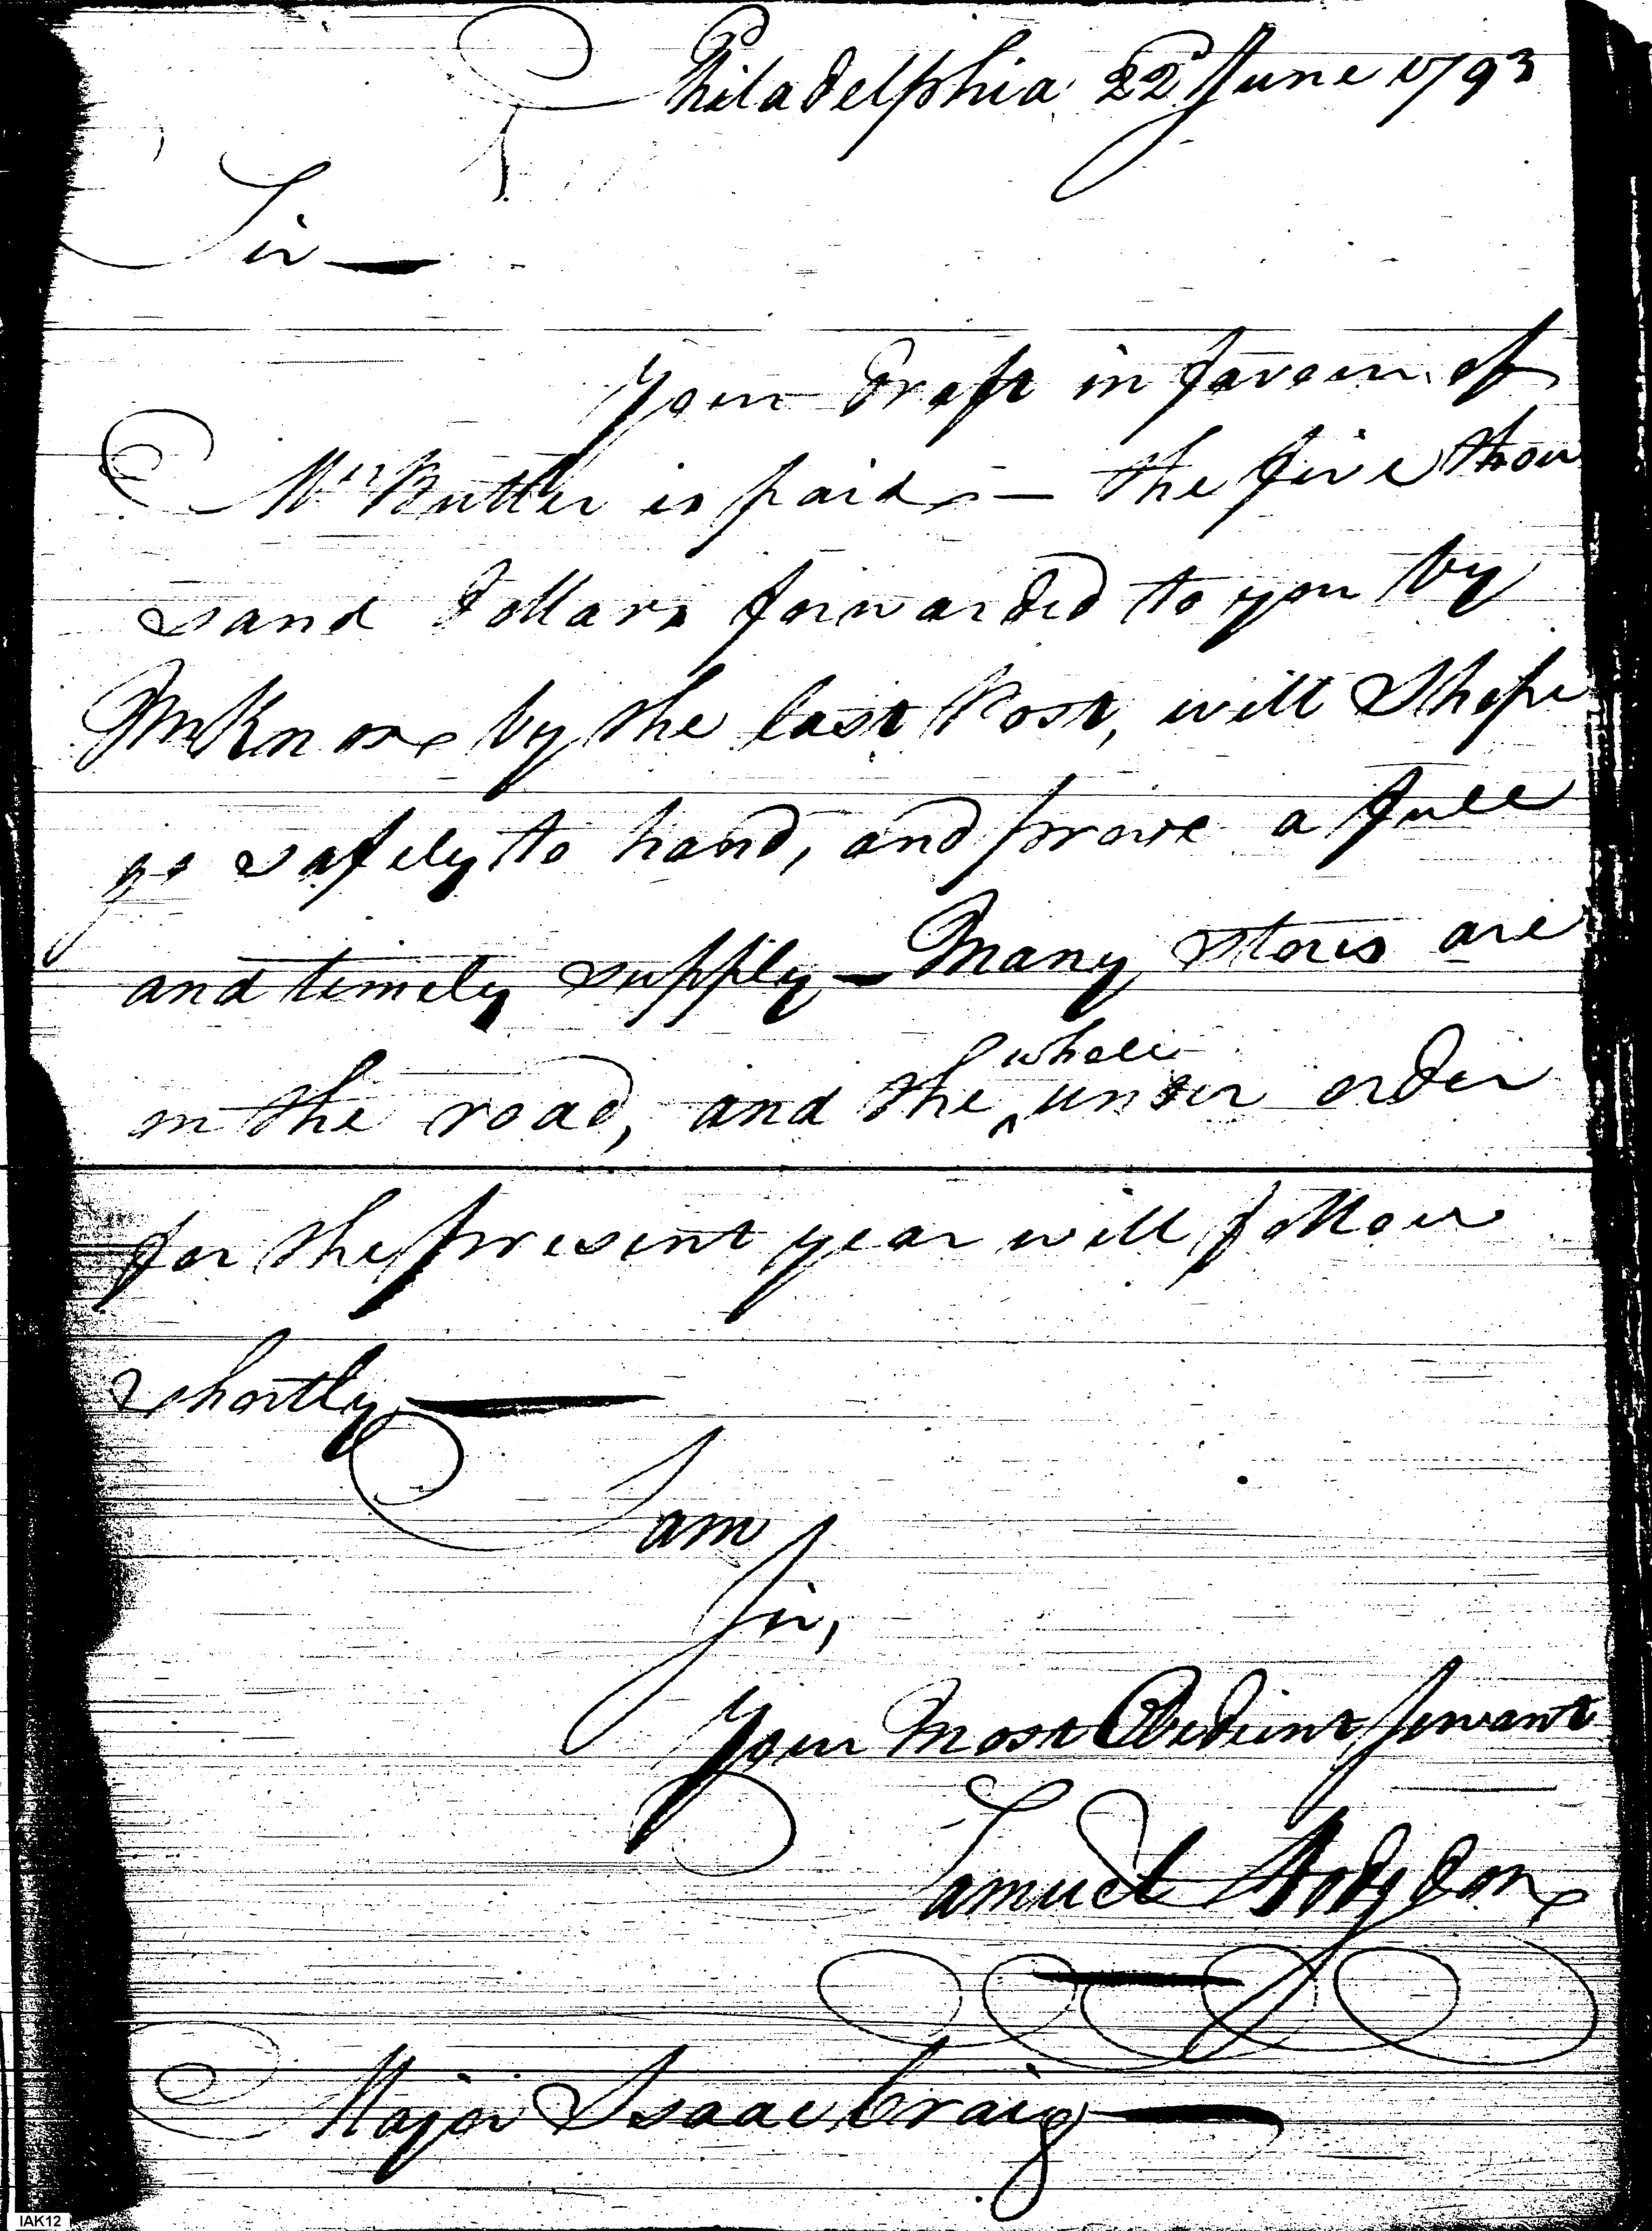 Philadelphia 22d June 1793
Sir —
Your Draft in favour of
Mr Butler is paid — the five thou
sand Dollars forwarded to you by
Mr Knox by the last Post, will I hope
go safely to hand, and prove a full
and timely supply — Many stores are
on the road, and the ^whole under order
for the present year will follow
shortly —
I am
Sir,
Your Most Obedient Servant
Samuel Hodgdon
Major Isaac Craig —
IAK12